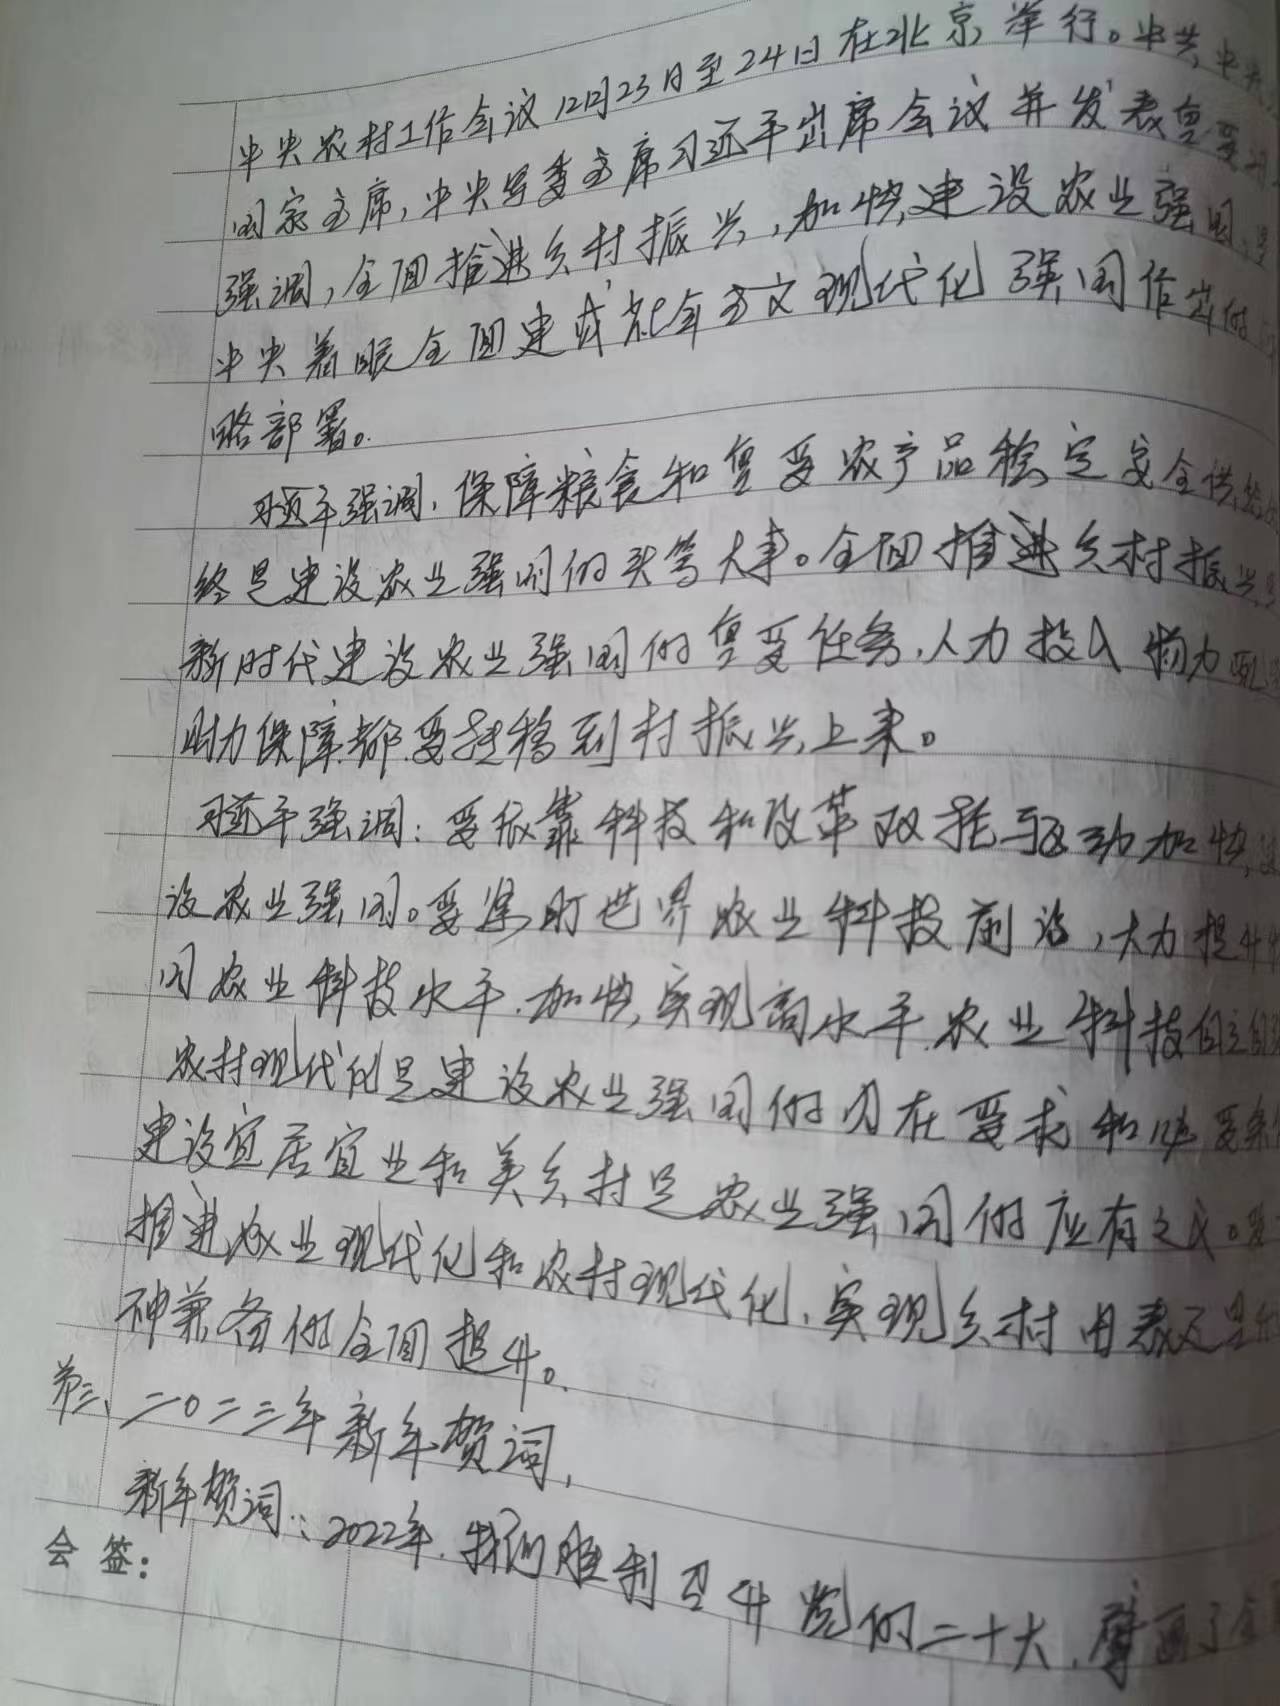 中央农村工作会议12月23日至24日在北京举行。中共中央
国家主席，中央军委主席习近平出席会议并发表重要
强调，全面推进乡村振兴，加快建设农业强国，是
中央着眼全面建成社会主义现代化强国作出的
略部署。
习近平强调，保障粮食和重要农产品稳定安全供给
终是建设农业强国的头等大事。全面推进乡村振兴
新时代建设农业强国的重要任务，人力投入物力配
财力保障都要转移到村振兴上来。
习近平强调：要依靠科技和改革双轮驱动加快建
设农业强国。要紧盯世界农业科技前沿，大力提升
国农业科技水平，加快实现高水平农业科技自立自
农村现代化是建设农业强国的内在要求和必要条
建设宜居宜业和美乡村是农业强国的应有之义。要
推进农业现代化和农村现代化，实现乡村由表及里
神兼备的全面提升。
第三、二〇二三年新年贺词，
新年贺词：2022年，我们胜利召开党的二十大，擘画了全
会签：